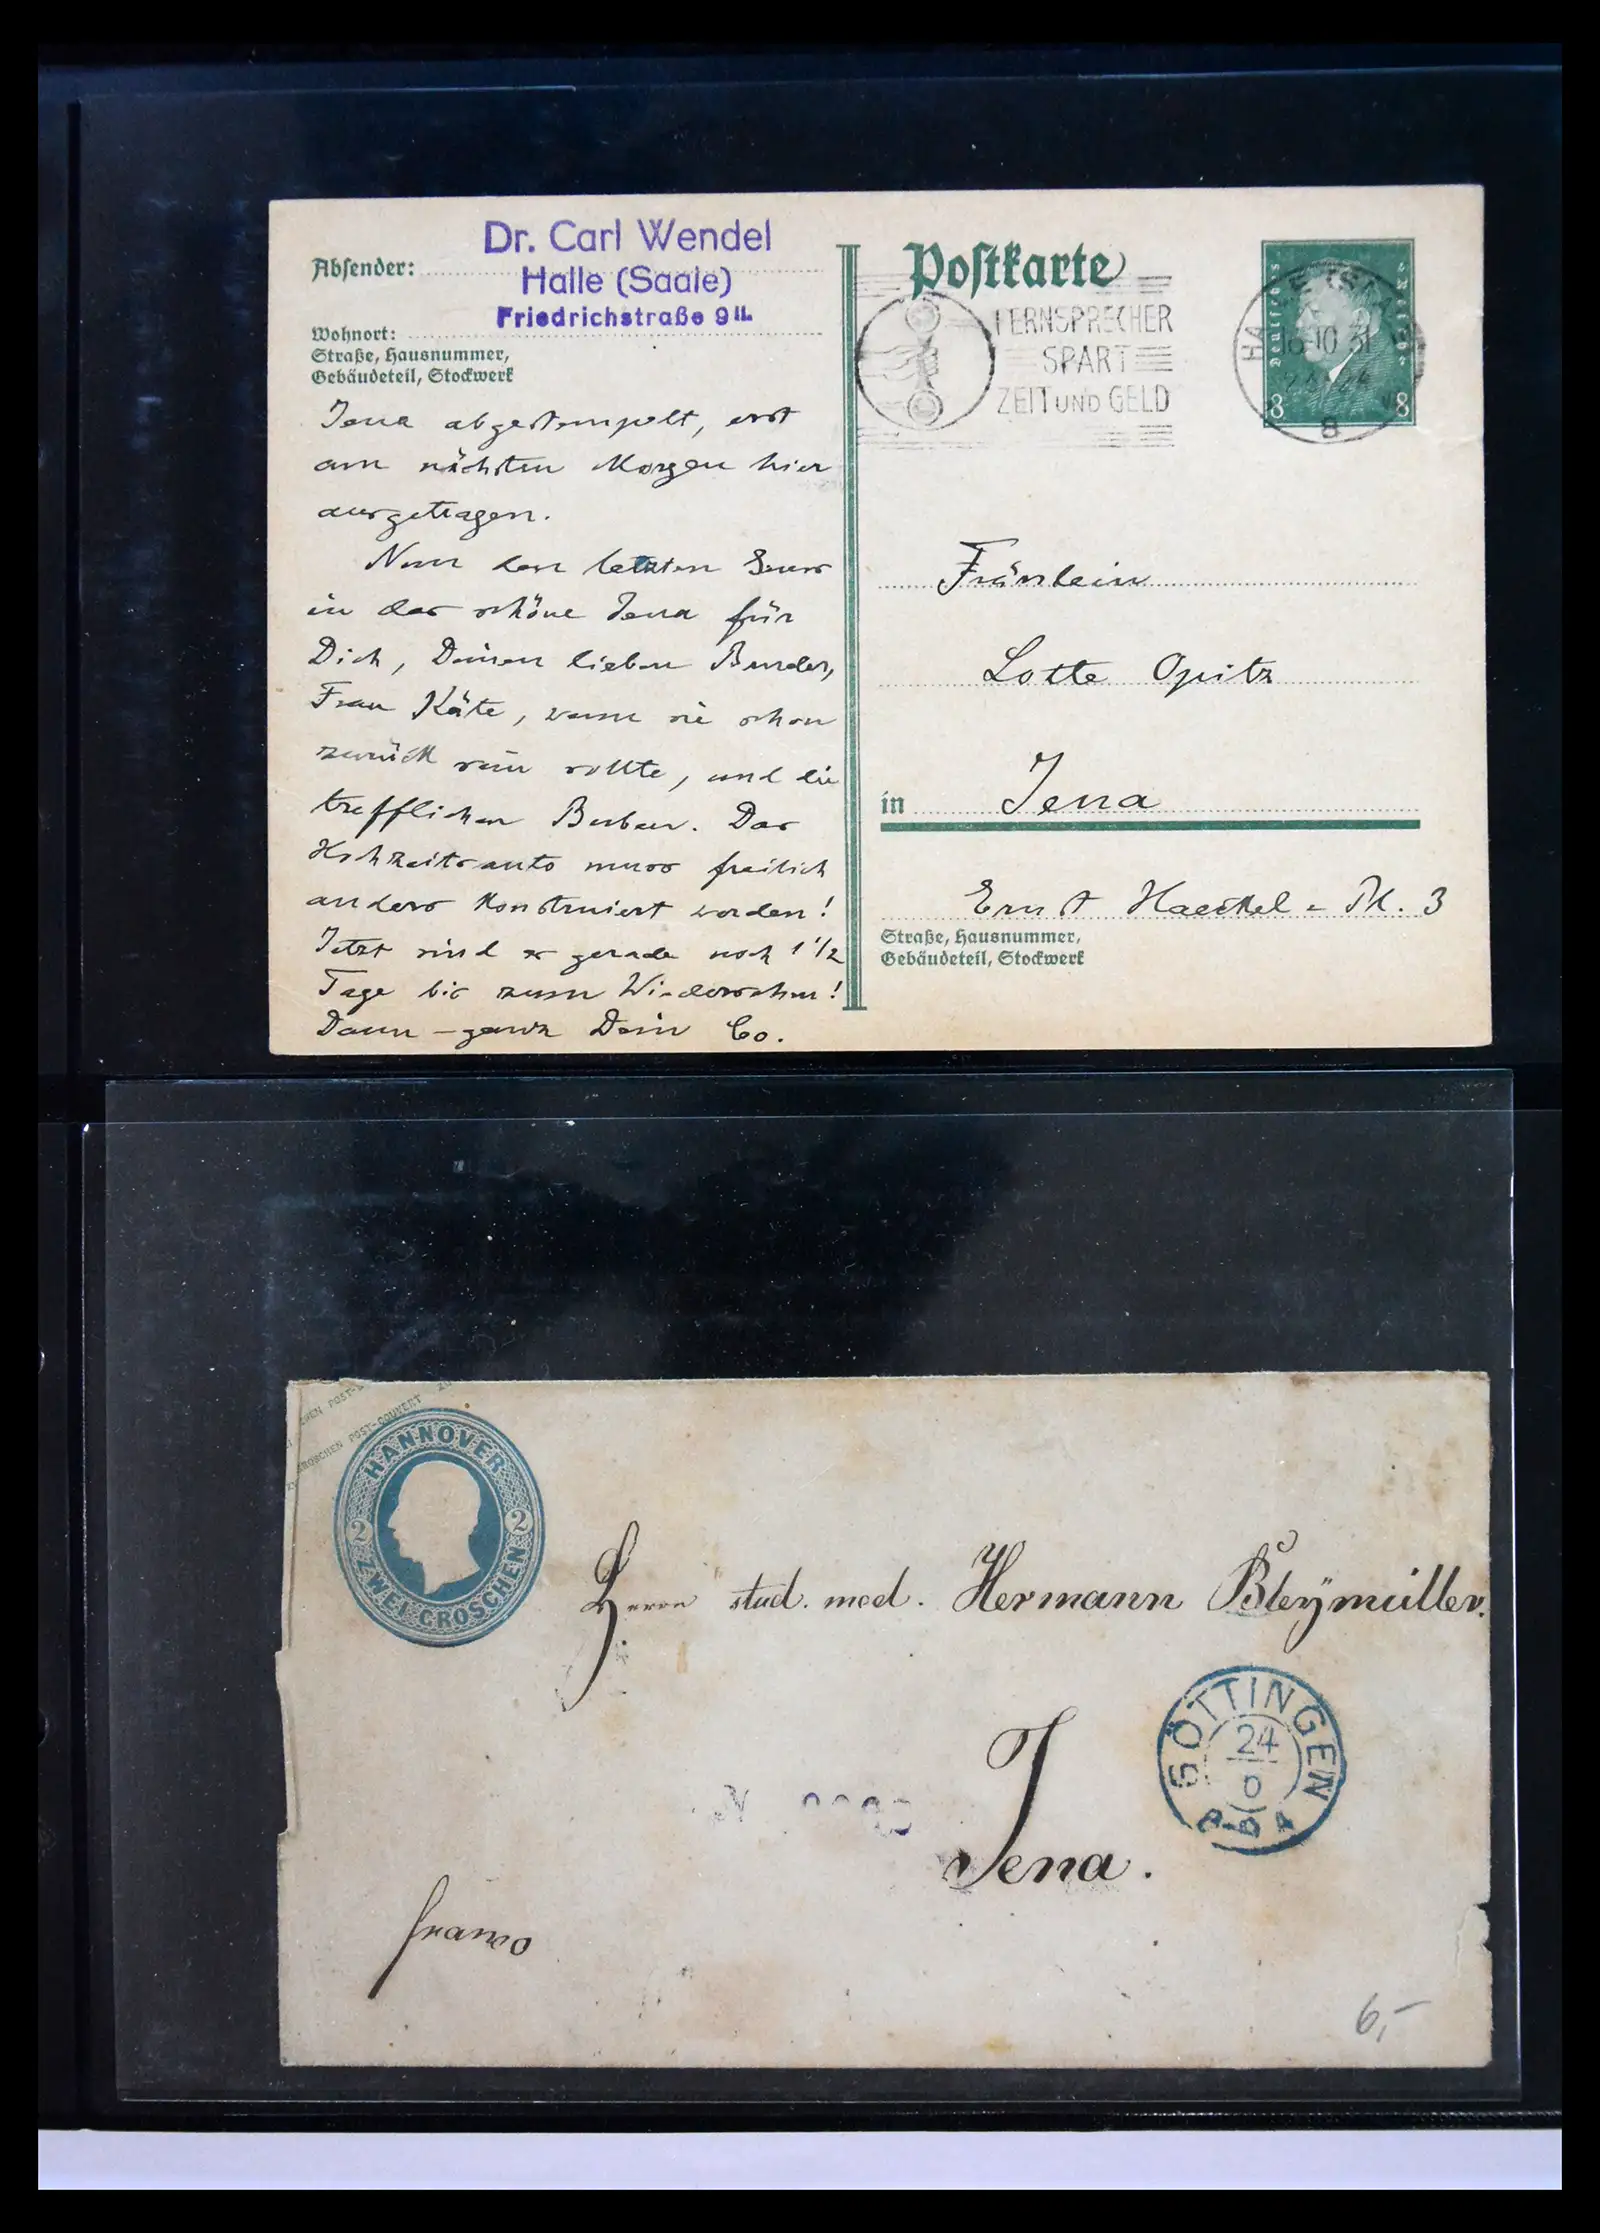 Dr. Carl Wendel
Absender: Halle (Saale)
Friedrichstraße 9 II.
Wohnort:
Straße, Hausnummer,
Gebäudeteil, Stockwerk
Jena abgestempelt, erst
am nächsten Morgen hier
ausgetragen.
Nun den letzten Gruss
in das schöne Jena für
Dich, Deinen lieben Bruder,
Frau Käte, wenn sie schon
zurück sein sollte, und die
trefflichen Buben. Das
Hochzeitsauto muss freilich
anders konstruiert werden!
Jetzt sind es gerade noch 1 1/2
Tage bis zum Wiedersehen!
Dann – ganz Dein Co.
Postkarte
FERNSPRECHER
SPART
ZEIT UND GELD
HALLE (SAALE)
16.10.31
8
Deutsches Reich
8 8
Fräulein
Lotte Opitz
in Jena
Ernst Haeckel-Pl. 3
Straße, Hausnummer,
Gebäudeteil, Stockwerk
GROSCHEN POST-COUVERT
HANNOVER
2 2
ZWEI GROSCHEN
Herrn stud. med. Hermann Bleymüller.
Jena.
GÖTTINGEN
24
franco
6,-